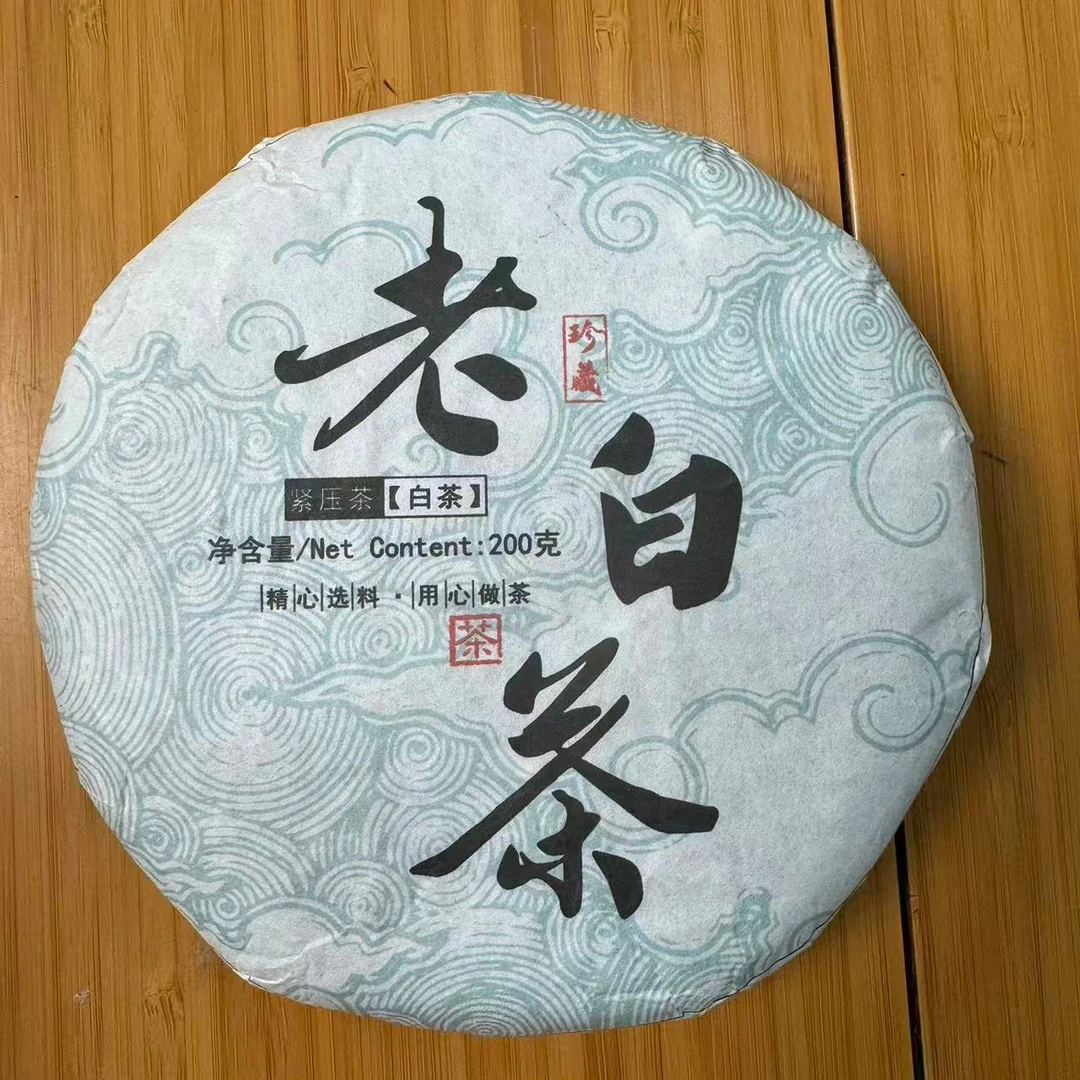 老白茶
珍藏
紧压茶【白茶】
净含量/Net Content:200克
|精|心|选|料·|用|心|做|茶
茶